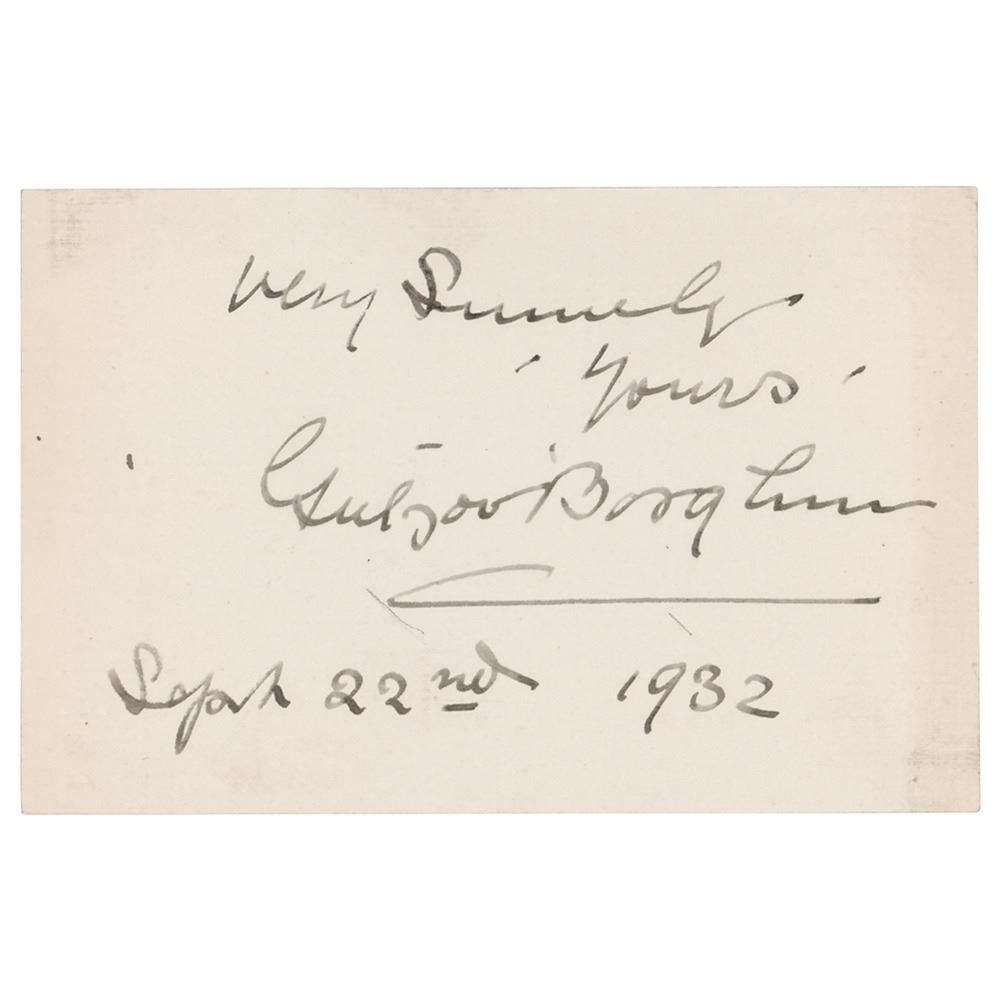 Very Sincerely
Yours
Gutzon Borglum
Sept 22nd 1932